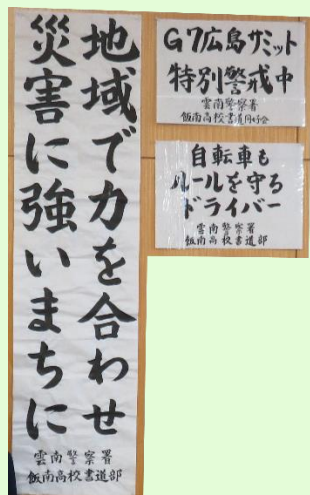 地域で力を合わせ
災害に強いまちに
雲南警察署
飯南高校書道部
G7広島サミット
特別警戒中
雲南警察署
飯南高校書道同好会
自転車も
ルールを守る
ドライバー
雲南警察署
飯南高校書道部